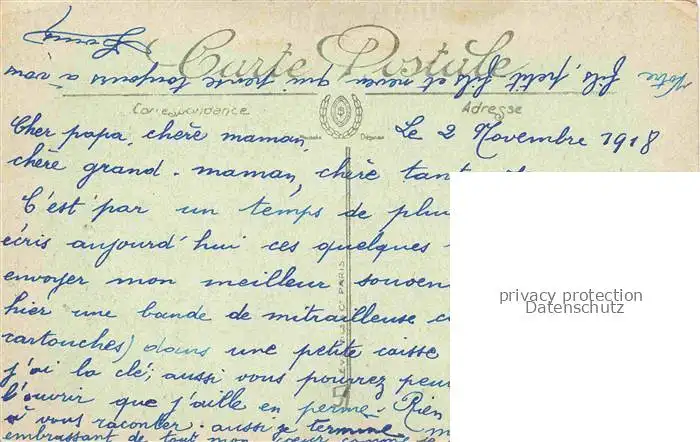 Votre fils, petit-fils et neveu qui pense toujours à vous
Carte Postale
Correspondance
Adresse
Le 2 Novembre 1918
Cher papa, chère maman,
chère grand-maman, chère tant
C'est par un temps de plu
écris aujourd'hui ces quelques
envoyer mon meilleur souven
hier une bande de mitrailleuse
cartouches) dans une petite caisse
j'ai la clé; aussi vous pourrez peu
l'ouvrir que j'aille en perme. Rien
à vous raconter. aussi je termine
embrassant de tout mon cœur comme
privacy protection
Datenschutz